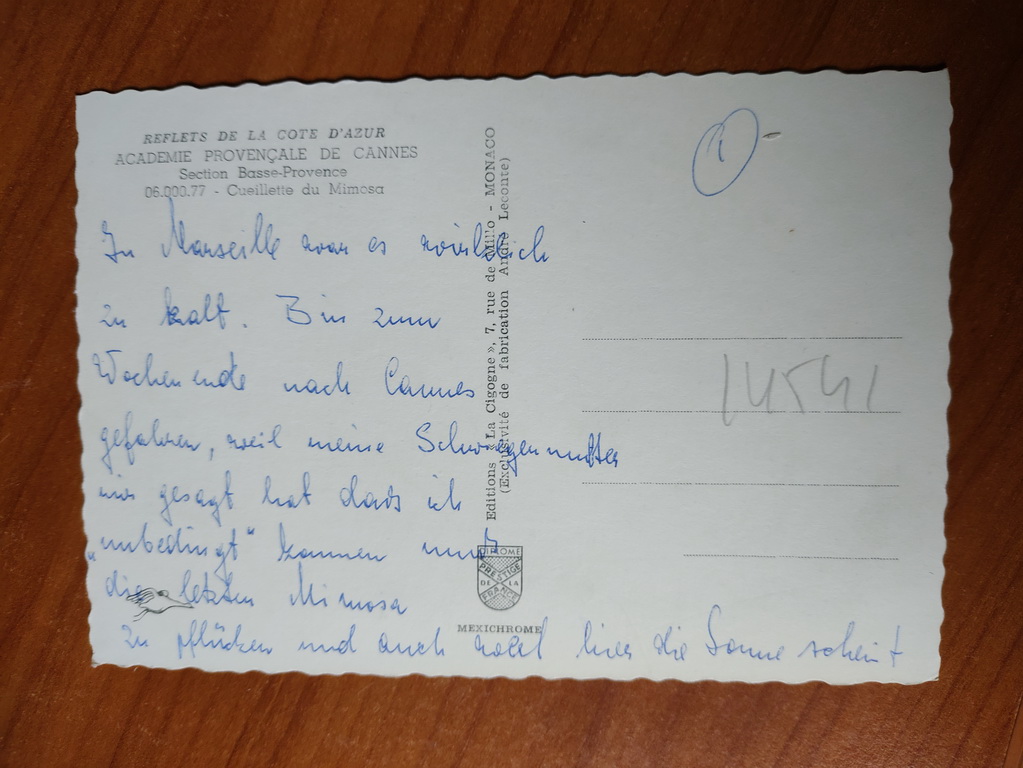 REFLETS DE LA COTE D'AZUR
ACADEMIE PROVENÇALE DE CANNES
Section Basse-Provence
06.000.77 - Cueillette du Mimosa
In Marseille war es wirklich
zu kalt. Bin zum
Wochenende nach Cannes
gefahren, weil meine Schwiegermutter
mir gesagt hat dass ich
„unbedingt" kommen muss
die letzten Mimosa
zu pflücken und auch weil hier die Sonne scheint
Editions «La Cigogne», 7, rue de Millo - MONACO
(Exclusivité de fabrication André Leconte)
DIPLOME
PRESTIGE
DE LA
FRANCE
MEXICHROME
1
14541